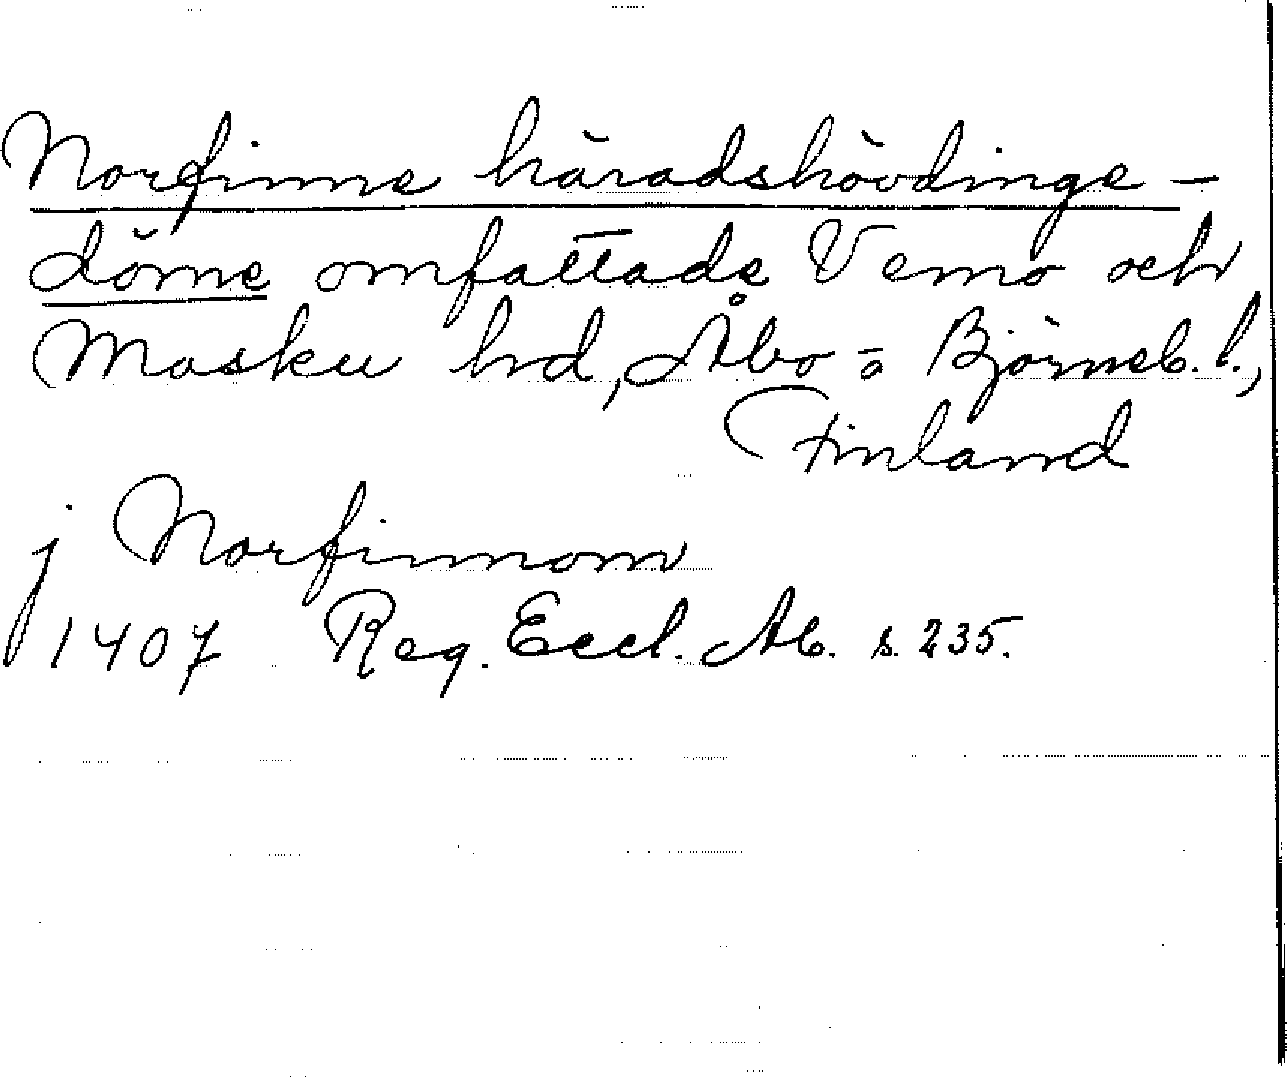 Norfinne häradshövdinge-
döme omfattade Vemo och
Masku hd, Åbo- o Björneb. l.,
Finland
j Norfinnom
1407 Reg. Eccl. Ab. s. 235.